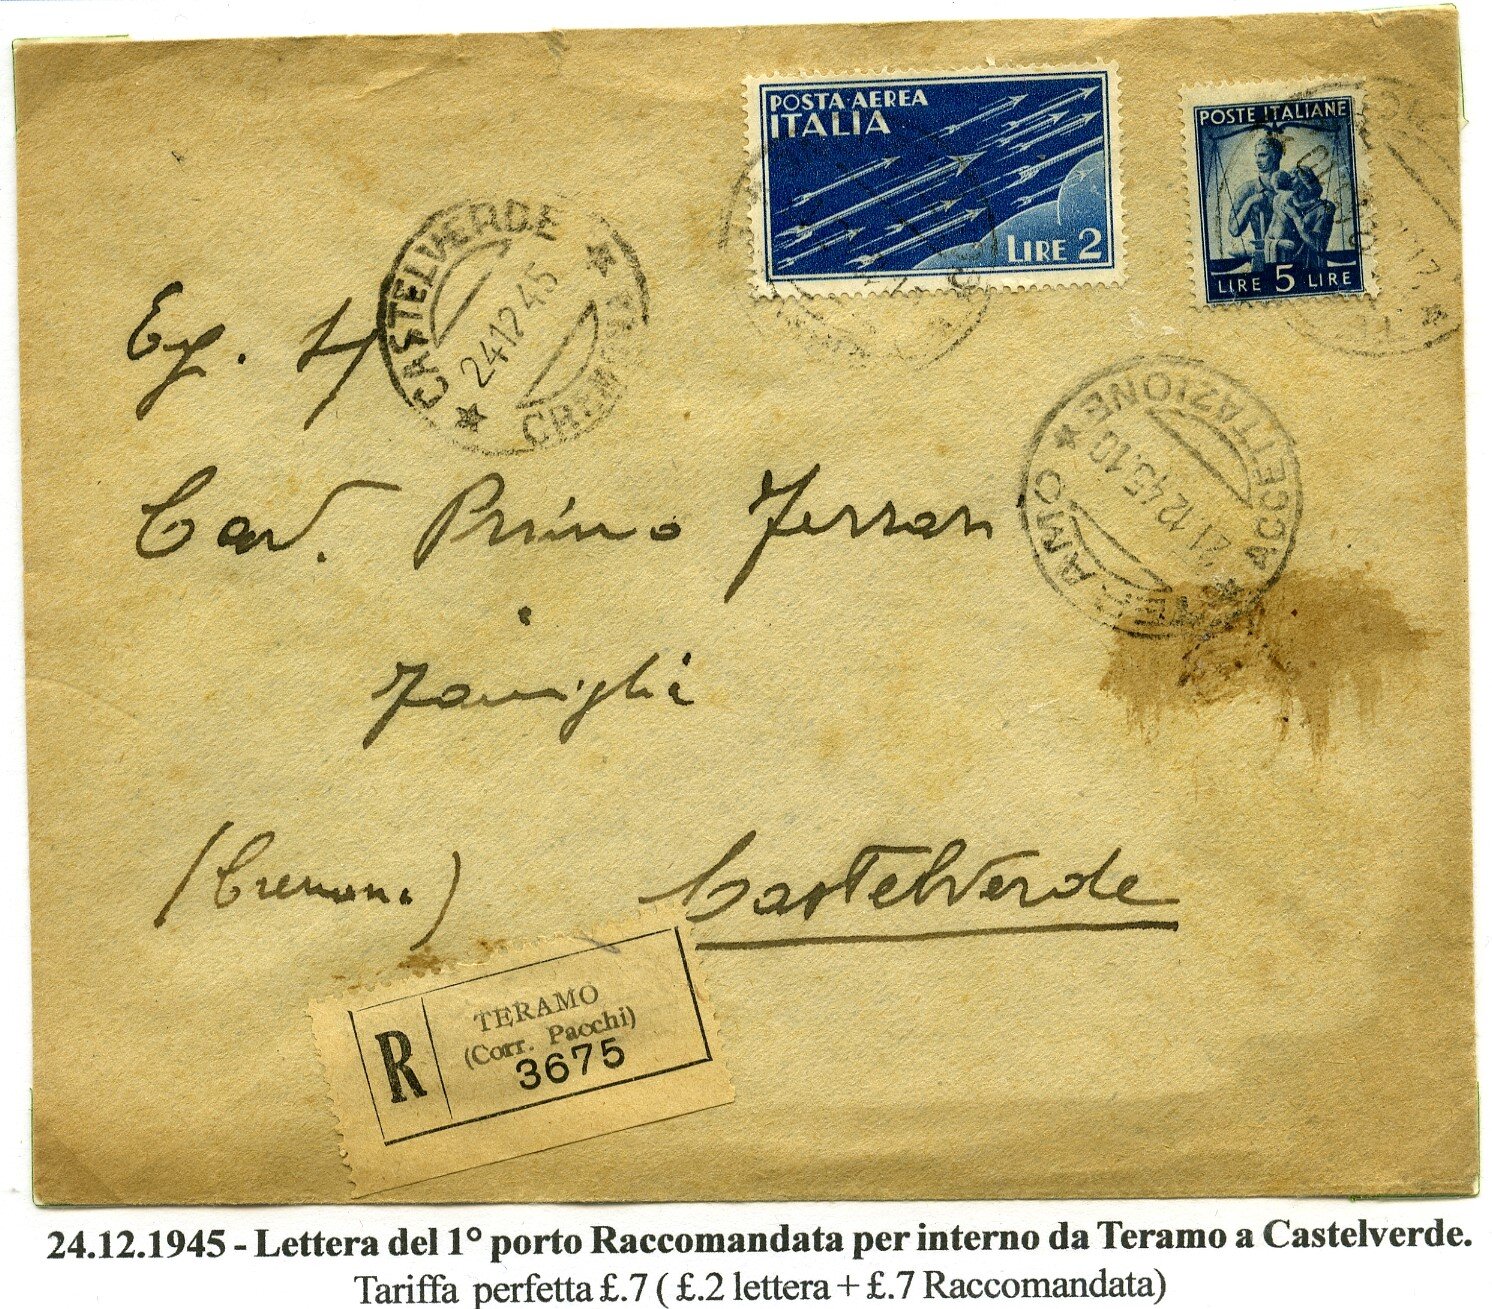 POSTA AEREA
ITALIA
LIRE 2
POSTE ITALIANE
LIRE 5 LIRE
CASTELVERDE
24 12 45
CREMONA
TERAMO
21.12.45.10
ACCETTAZIONE
Cav. Primo Ferrari
Famiglia
(Cremona)
Castelverde
R
TERAMO
(Corr. Pacchi)
3675
24.12.1945 - Lettera del 1° porto Raccomandata per interno da Teramo a Castelverde.
Tariffa perfetta £.7 ( £.2 lettera + £.7 Raccomandata)